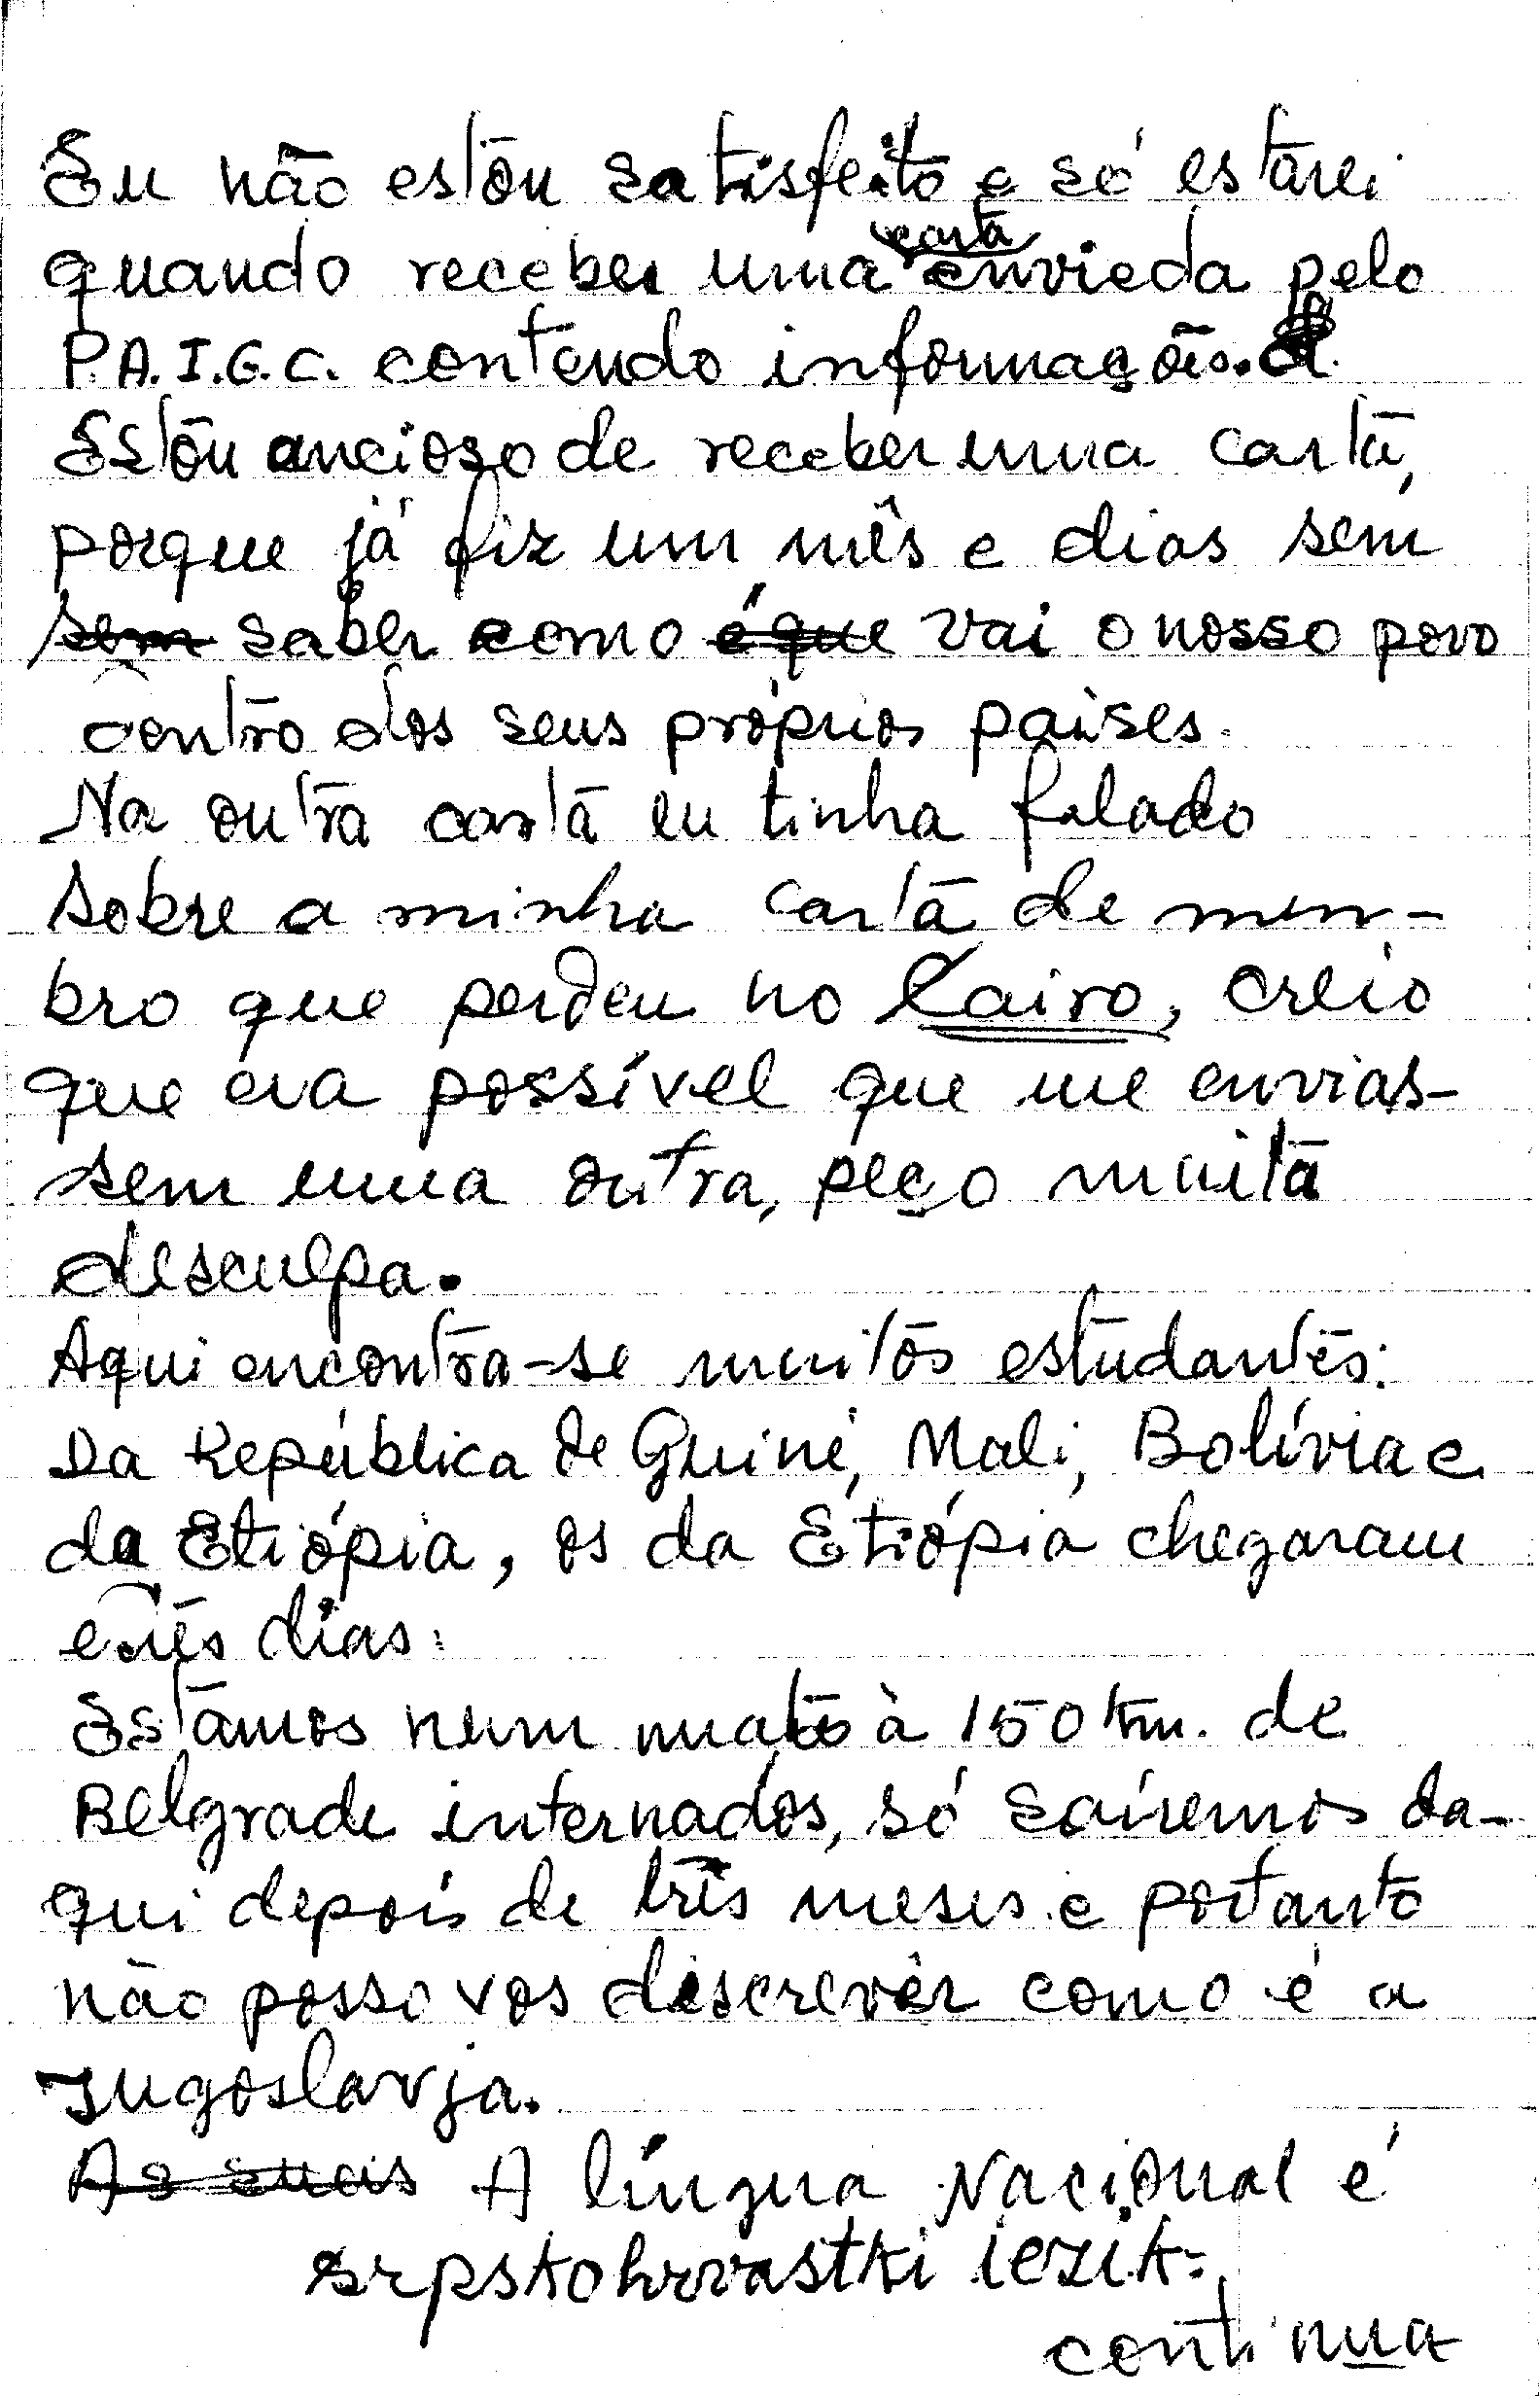 Eu não estou satisfeito e só estarei
quando receber uma carta enviada pelo
P.A.I.G.C. contendo informações.
Estou ancioso de receber uma carta,
porque já fiz um mês e dias sem
sem saber como é que vai o nosso povo
dentro dos seus próprios países.
Na outra carta eu tinha falado
sobre a minha carta de mem-
bro que perdeu no Cairo, creio
que era possível que me envias-
sem uma outra, peço muita
desculpa.
Aqui encontra-se muitos estudantes:
Da República de Guiné, Mali, Bolívia e
da Etiópia, os da Etiópia chegaram
dias.
Estamos num mato à 150 km. de
Belgrade internados, só sairemos da-
qui depois de três meses e portanto
não posso vos discrevêr como é a
Jugoslavja.
As suas A língua Nacional é
srpskohrvastki iezik.
continua